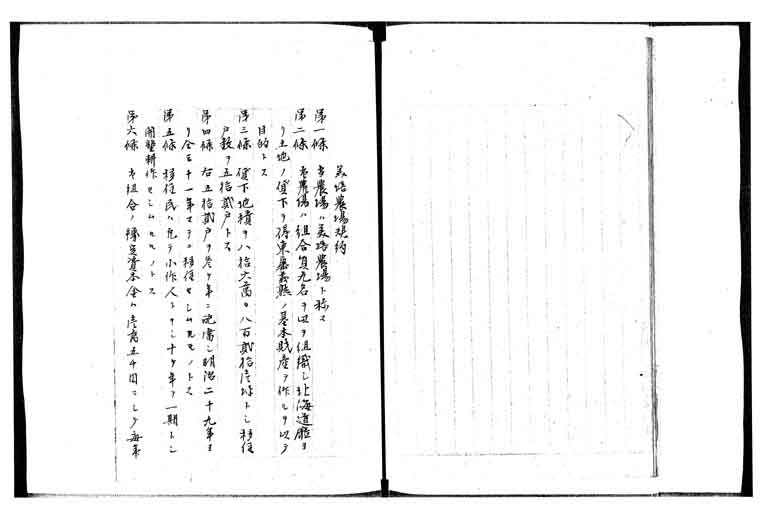 美瑛農場規約
第一條 本農場ハ美瑛農場ト称ス
第二條 本農場ハ組合員九名ヲ以テ組織シ北海道廳ヨ
リ土地ノ貸下ヲ得東 義塾ノ基本財産ヲ作ルヲ以テ
目的トス
第三條 貸下地積ヲ八拾六萬 八百貳拾 坪トシ移住
戸数ヲ五拾貳戸トス
第四條 右五拾貳戸ヲ ケ年ニ シ明治二十九年ヨ
リ仝三十一年マテニ移住セシムルモノトス
第五條 移住民ハ凡テ小作人トナシ十ケ年ヲ一期トシ
開墾耕作セシムルモノトス
第六條 本組合ノ 資本金ハ 萬五千円ニシテ毎年